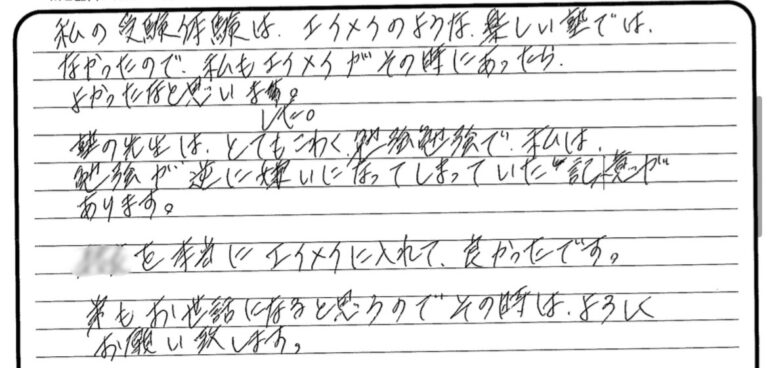 私の受験体験は、エイメイのような、楽しい塾では、
なかったので、私もエイメイがその時にあったら、
よかったなと思います。
した。
塾の先生は、とてもこわく、勉強勉強で、私は、
勉強が逆に嫌いになってしまっていた"記憶"が
あります。
を本当にエイメイに入れて、良かったです。
弟もお世話になると思うのでその時は、よろしく
お願い致します。